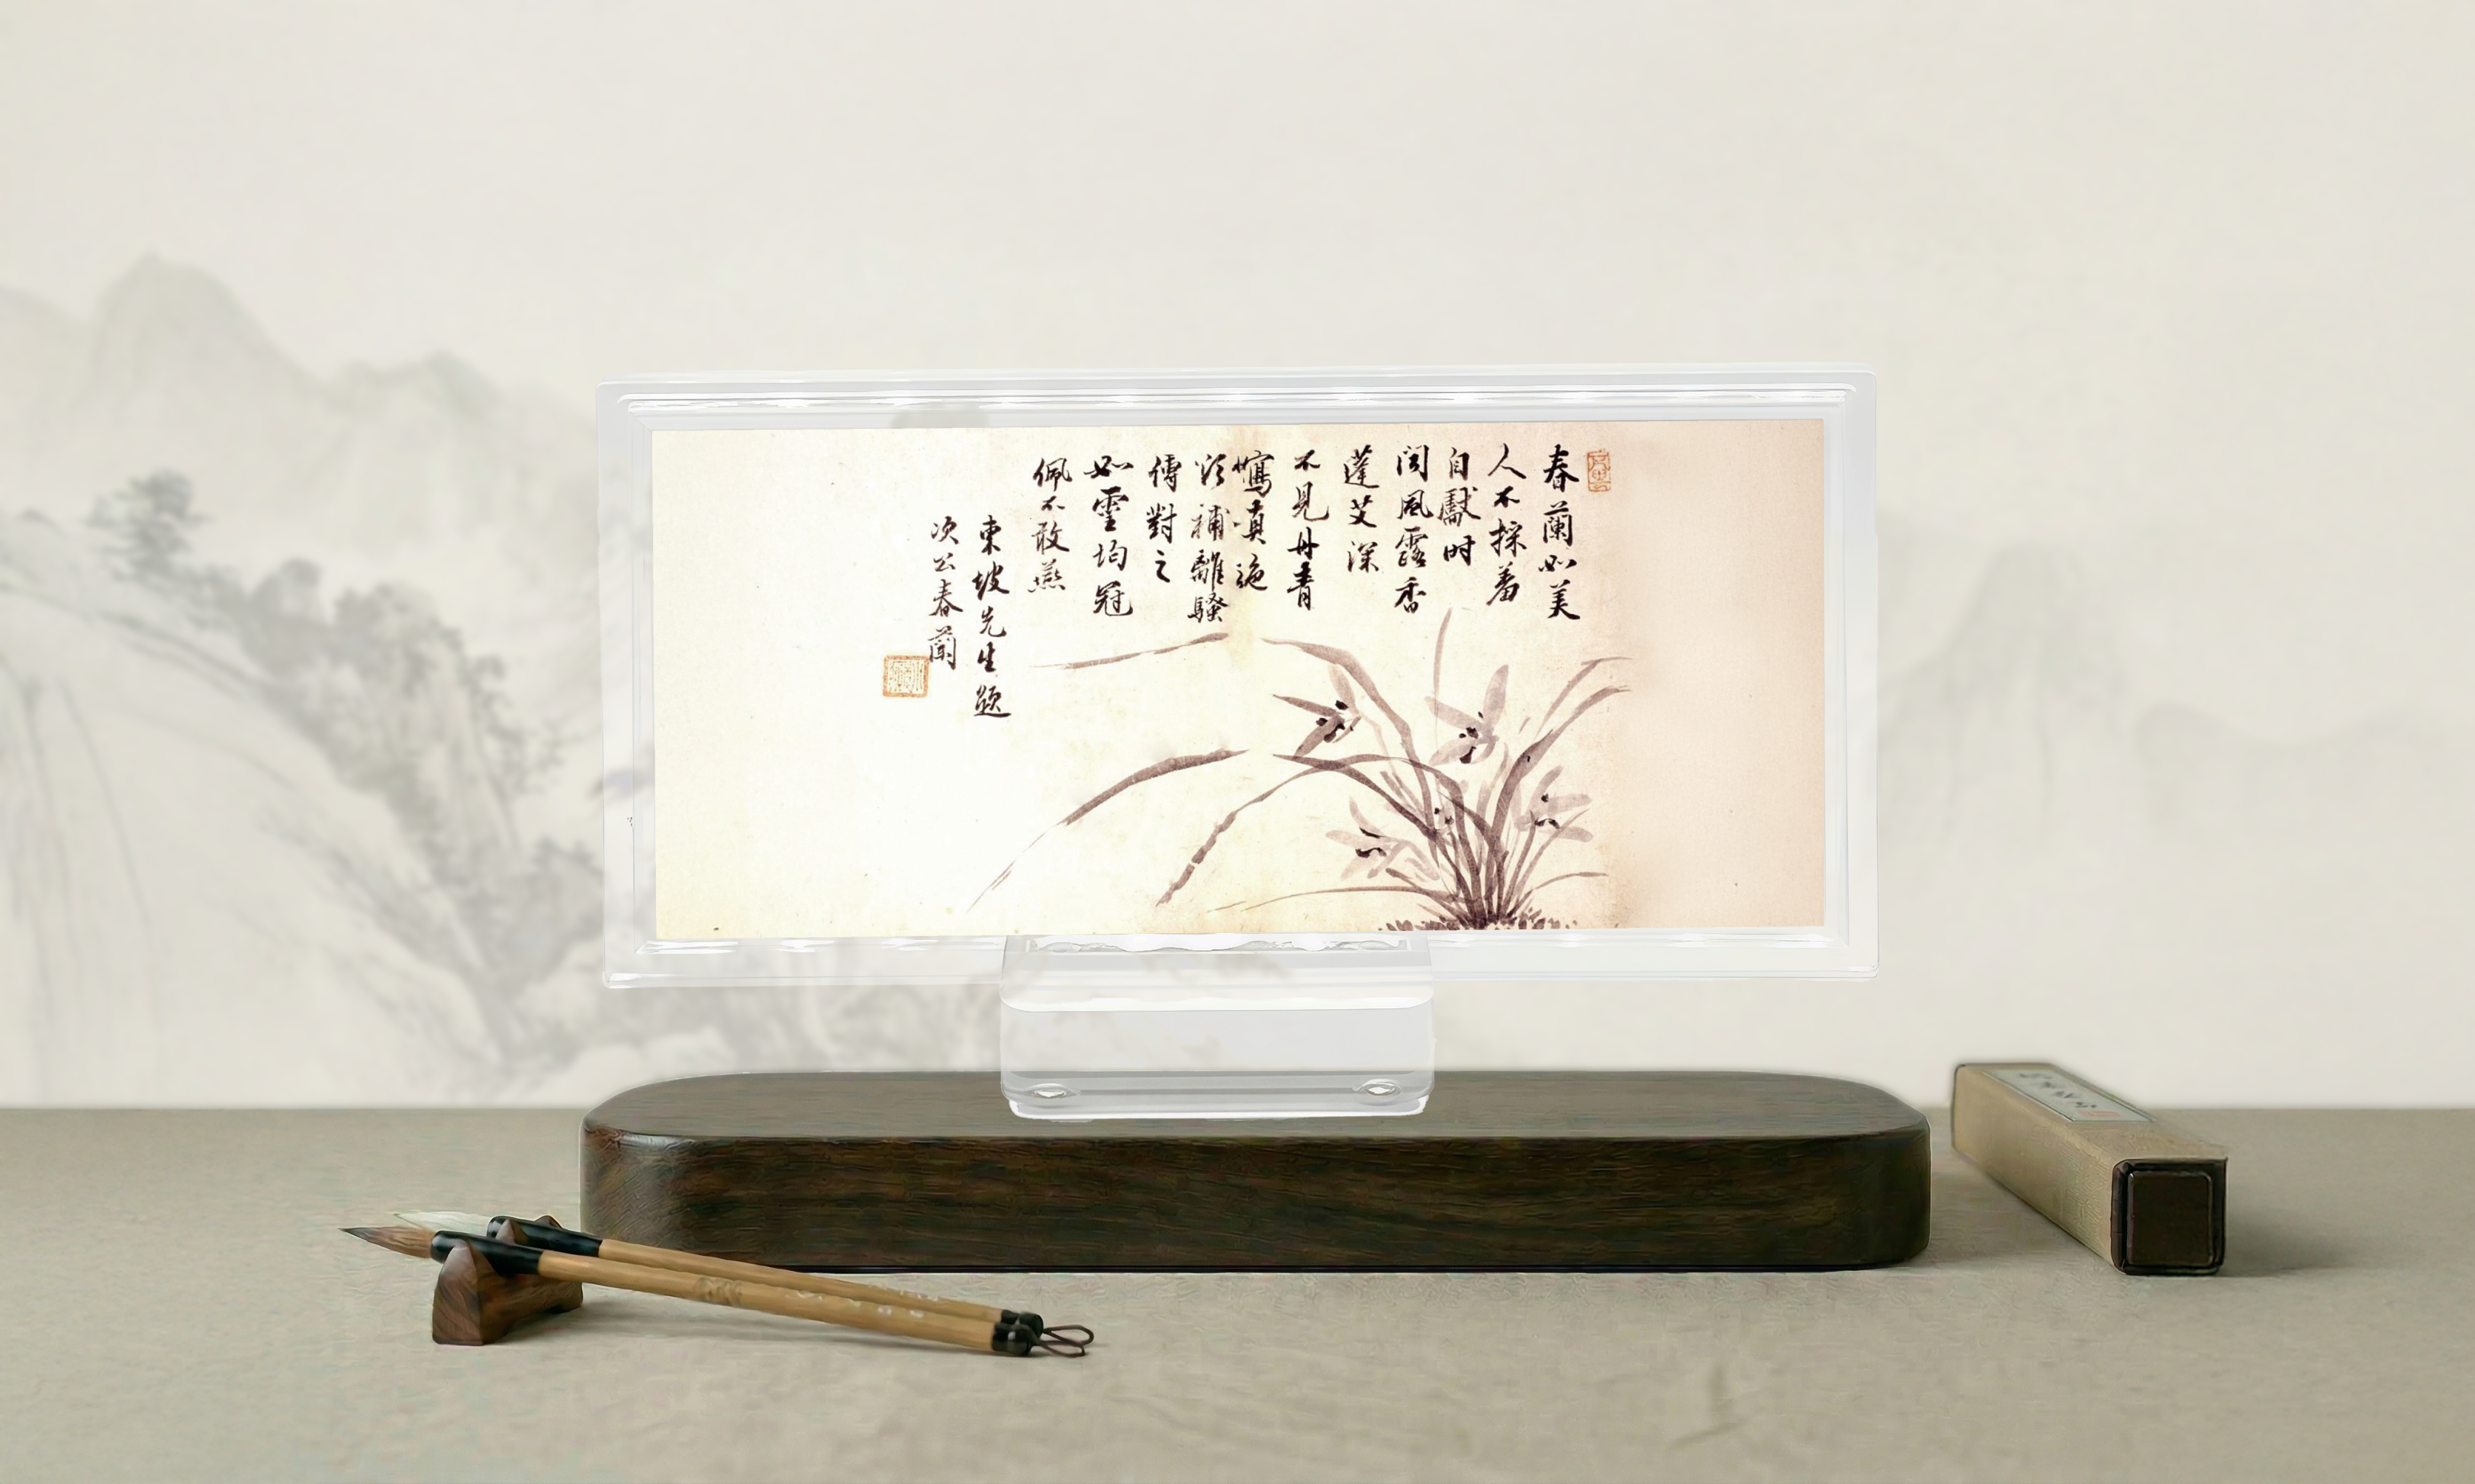 春蘭如美
人不採羞
自獻时
闻風露香
蓬艾深
不見丹青
寫真
欲補離騷
傳對之
如靈均冠
佩不敢燕
東坡先生題
次公春蘭